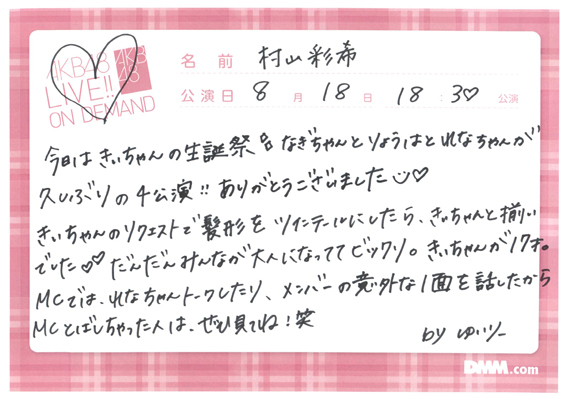 AKB48
LIVE!!
ON DEMAND
AKB
48
名前 村山彩希
公演日 8月18日 18:30公演
今日はきぃちゃんの生誕祭 なぎちゃんとりょうはとれなちゃんが
久しぶりの4公演!! ありがとうございました♡
きぃちゃんのリクエストで髪形をツインテールにしたら、きぃちゃんと揃い
でした♡♡ だんだんみんなが大人になっててビックリ。きぃちゃんが17才。
MCでは、れなちゃんトークしたり、メンバーの意外な1面を話したから
MCとばしちゃった人は、ぜひ見てね!笑
by ゆいりー
DMM.com